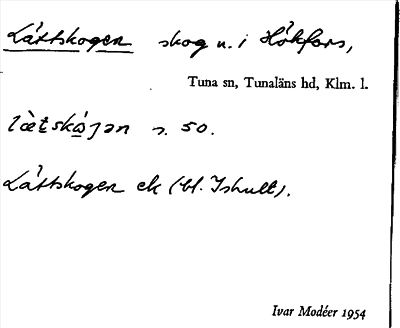 Lättskogen skog n. i Hökfors,
Tuna sn, Tunaläns hd, Klm. l.
lɑ̀ tskó ən s. 50.
Lättskogen ek (bl. Ishult).
Ivar Modéer 1954